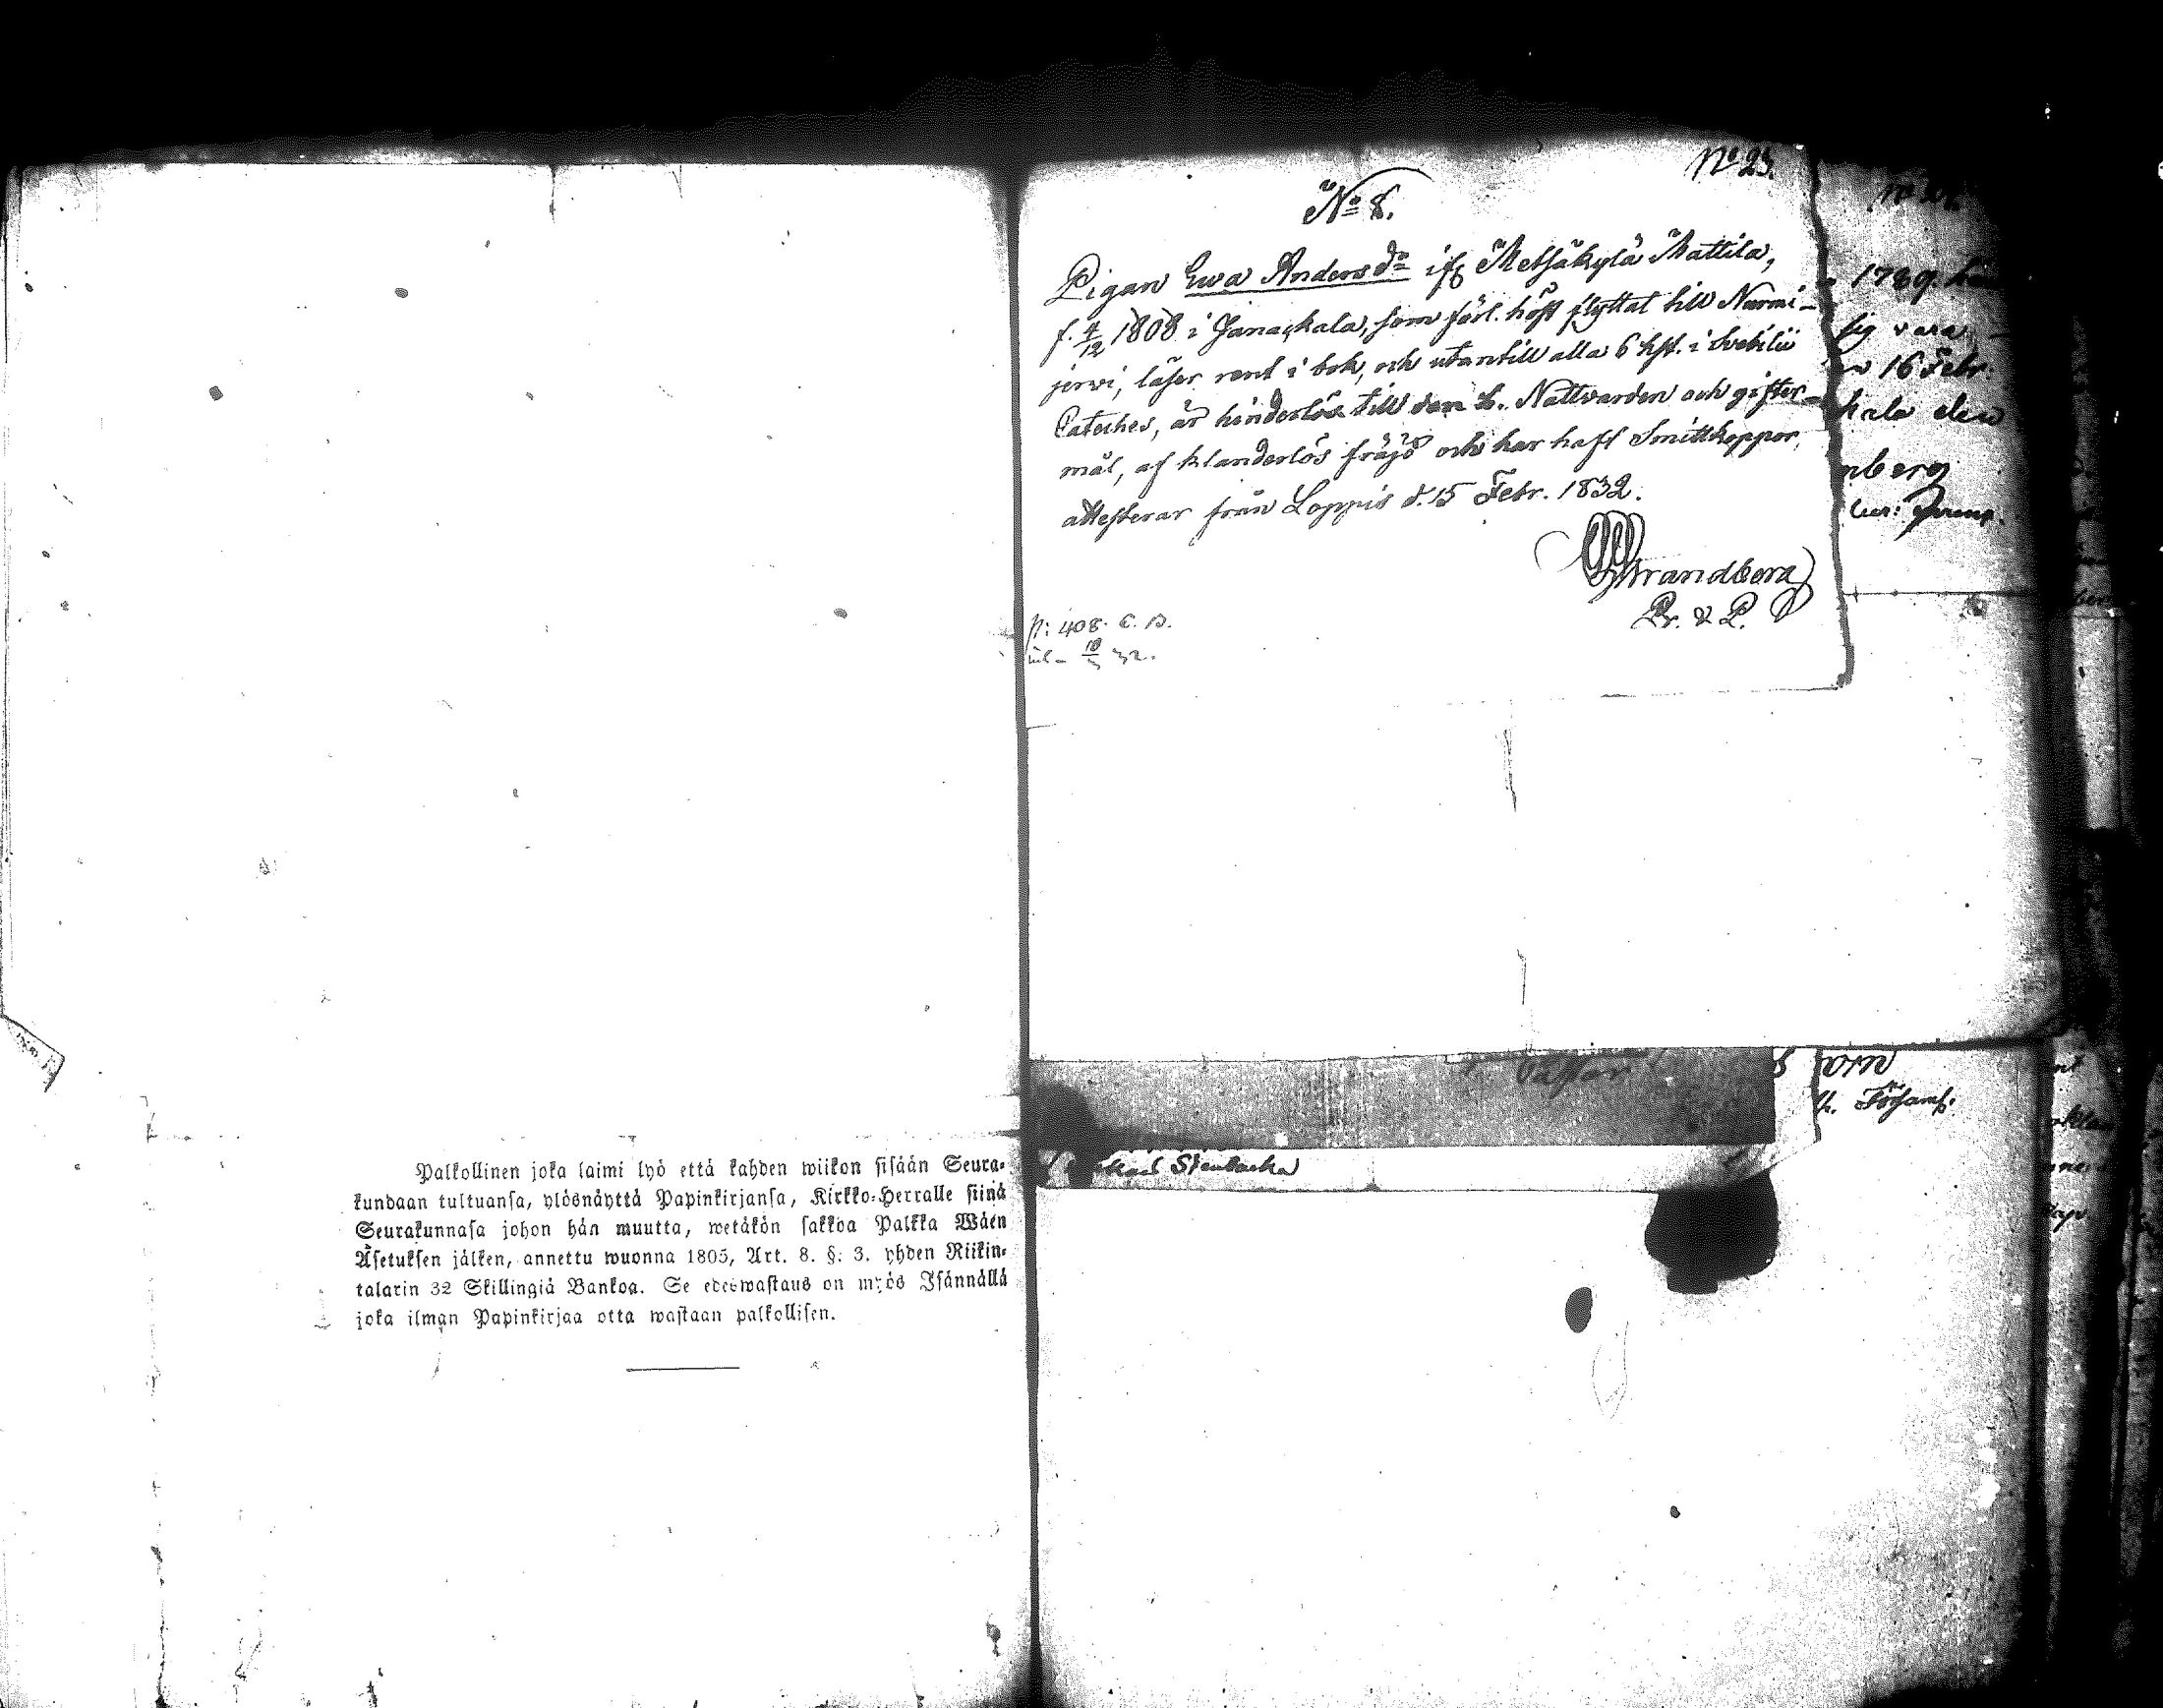 Palkollinen joka laimi lyö että kahden wiikon sisään Seura-
kundaan tultuansa, ylösnäyttä Papinkirjansa, Kirkko-Herralle siinä
Seurakunnasa johon hän muutta, wetäkön sakkoa Palkka Wäen
Asetuksen jälken, annettu wuonna 1805, Art. 8. §. 3. yhden Riikin-
talarin 32 Skillingiä Bankoa. Se edeswastaus on myös Isännällä
joka ilman Papinkirjaa otta wastaan palkollisen.
No 23.
No 8.
Pigan Ewa Andersdr ifr Metsäkylä Mattila,
f. 4/12 1808 i Janackala, som förl. höst flyttat till Nurmi-
jerwi, läser rent i bok, och utantill alla 6 hfst. i Svebilii
Cateches, är hinderlös till den h. Nattvarden och gifter-
mål, af klanderlös fräjd och har haft Smittkoppor,
attesterar från Loppis d. 15 Febr. 1832.
Strandberg
Pr. & P.
p: 408. C. B.
1789.
sig vara
16 Febr.
kala den
nberg
Stenbacka